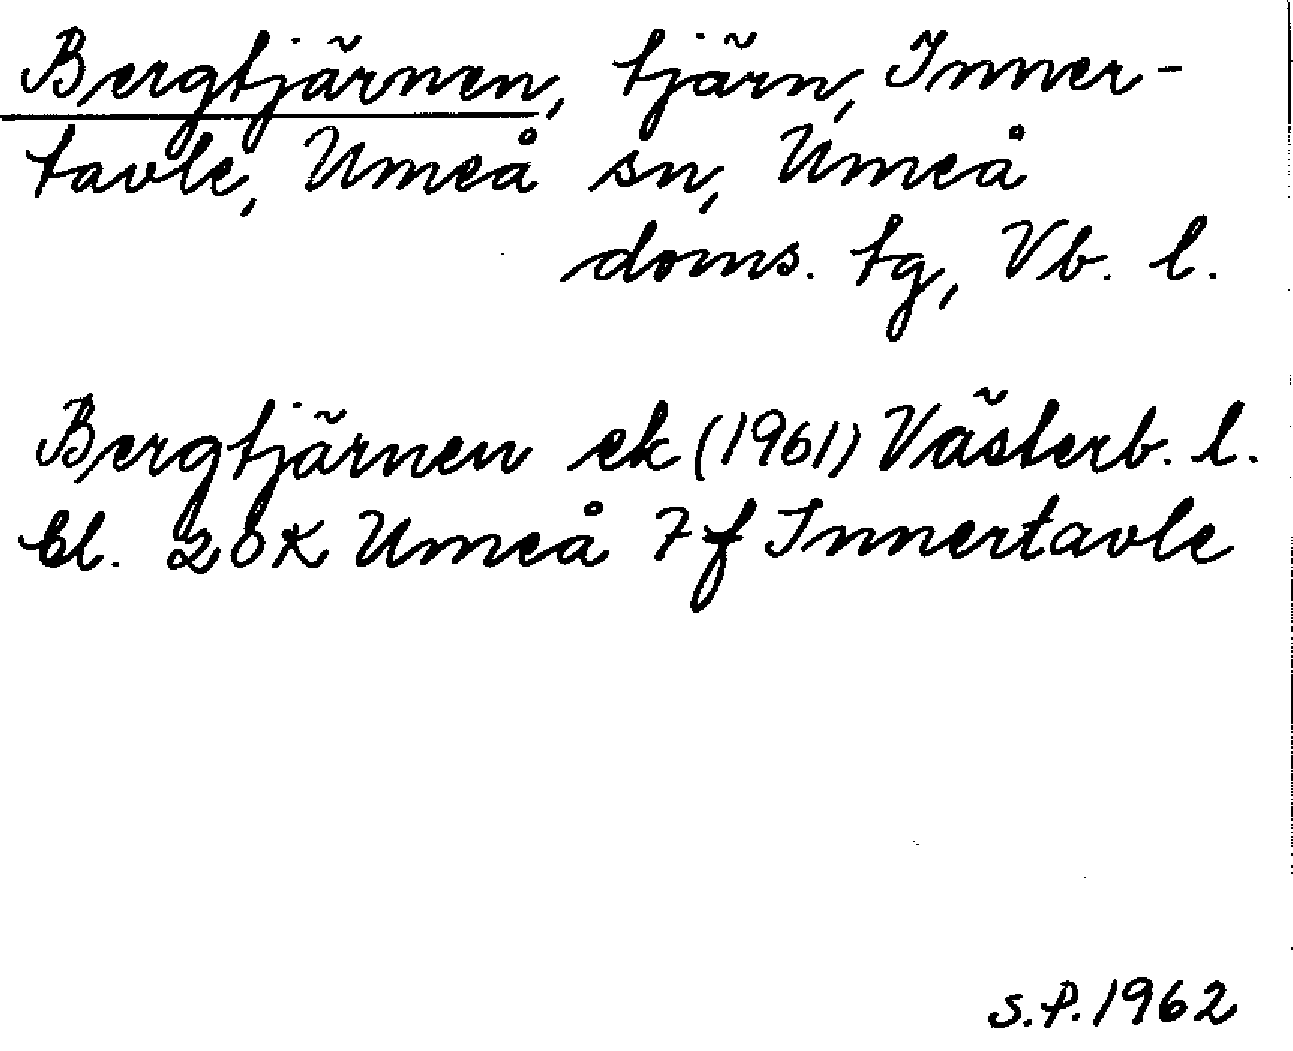 Bergtjärnen, tjärn, Inner-
tavle, Umeå sn, Umeå
doms. tg, Vb. l.
Bergtjärnen ek (1961) Västerb. l.
bl. 20K Umeå 7f Innertavle
S.P. 1962